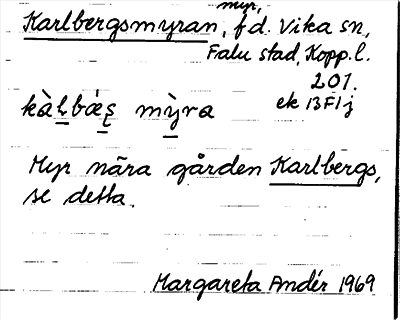 myr,
Karlbergsmyran, f.d. Vika sn,
Falu stad, Kopp.l.
201.
ek 13F1j
kàḻbæ̀s̨ mỳra
Myr nära gården Karlbergs,
se detta.
Margareta Andér 1969